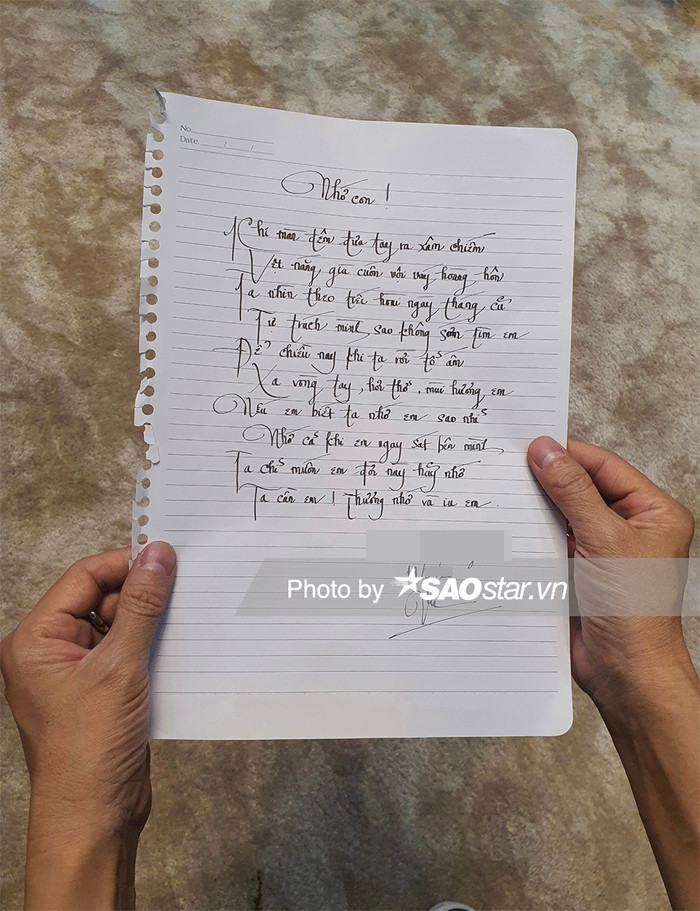 No
Date / / /
Nhớ con !
Khi man đêm đưa tay ra xâm chiếm
Vệt nắng gia cuốn với vay hoang hôn
Ta nhìn theo tiếc hoai ngay thang cũ
Tự trach minh sao không sớm tìm em
Để chiều nay khi ta rời tổ ấm
Xa vong tay, hơi thở, mui hương em
Nếu em biết ta nhớ em sao nhỉ
Nhớ cả khi em ngay sat bên minh
Ta chỉ muốn em đời nay hãy nhớ
Ta cần em ! Thương nhớ và iu em.
Photo by SAOstar.vn